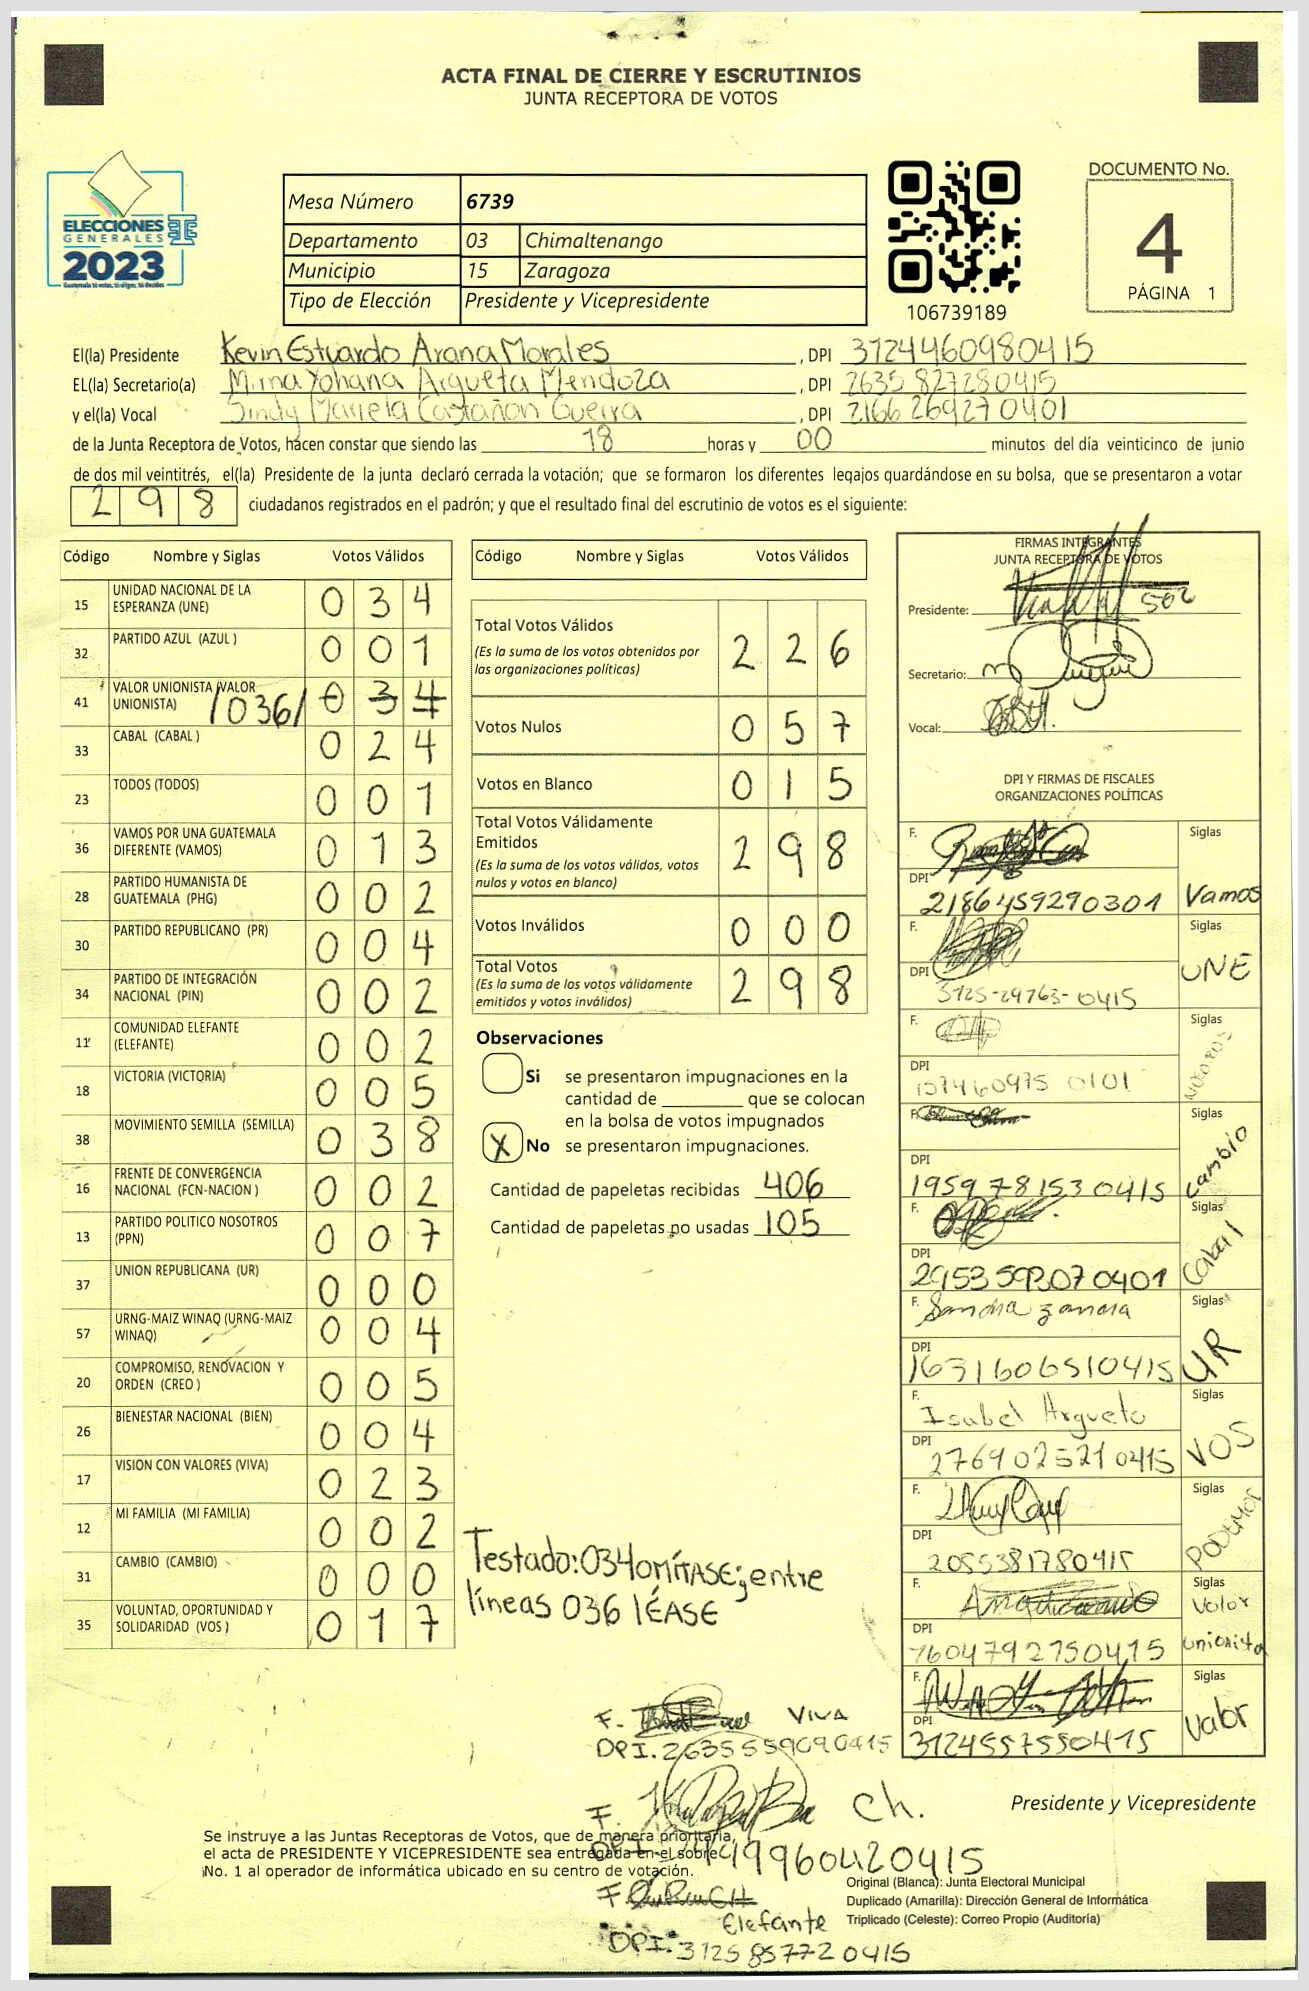 ACTA FINAL DE CIERRE Y ESCRUTINIOS
JUNTA RECEPTORA DE VOTOS
ELECCIONES
GENERALES
2023
Mesa Número 6739
Departamento 03 Chimaltenango
Municipio 15 Zaragoza
Tipo de Elección Presidente y Vicepresidente
106739189
DOCUMENTO No.
4
PÁGINA 1
El(la) Presidente Kevin Estuardo Arana Morales, DPI 3124460980415
EL(la) Secretario(a) Mirna Yohana Argueta Mendoza, DPI 2635827280415
y el(la) Vocal Sindy Mariela Castañon Guerra, DPI 2166269270401
de la Junta Receptora de Votos, hacen constar que siendo las 18 horas y 00 minutos del día veinticinco de junio
de dos mil veintitrés, el(la) Presidente de la junta declaró cerrada la votación; que se formaron los diferentes legajos guardándose en su bolsa, que se presentaron a votar
298 ciudadanos registrados en el padrón; y que el resultado final del escrutinio de votos es el siguiente:
Código Nombre y Siglas Votos Válidos
15 UNIDAD NACIONAL DE LA ESPERANZA (UNE) 034
32 PARTIDO AZUL (AZUL ) 001
41 VALOR UNIONISTA (VALOR UNIONISTA) /036/ 034
33 CABAL (CABAL ) 024
23 TODOS (TODOS) 001
36 VAMOS POR UNA GUATEMALA DIFERENTE (VAMOS) 013
28 PARTIDO HUMANISTA DE GUATEMALA (PHG) 002
30 PARTIDO REPUBLICANO (PR) 004
34 PARTIDO DE INTEGRACIÓN NACIONAL (PIN) 002
11 COMUNIDAD ELEFANTE (ELEFANTE) 002
18 VICTORIA (VICTORIA) 005
38 MOVIMIENTO SEMILLA (SEMILLA) 038
16 FRENTE DE CONVERGENCIA NACIONAL (FCN-NACION ) 002
13 PARTIDO POLITICO NOSOTROS (PPN) 007
37 UNION REPUBLICANA (UR) 000
57 URNG-MAIZ WINAQ (URNG-MAIZ WINAQ) 004
20 COMPROMISO, RENOVACION Y ORDEN (CREO ) 005
26 BIENESTAR NACIONAL (BIEN) 004
17 VISION CON VALORES (VIVA) 023
12 MI FAMILIA (MI FAMILIA) 002
31 CAMBIO (CAMBIO) 000
35 VOLUNTAD, OPORTUNIDAD Y SOLIDARIDAD (VOS ) 017
Código Nombre y Siglas Votos Válidos
Total Votos Válidos 226
(Es la suma de los votos obtenidos por las organizaciones políticas)
Votos Nulos 057
Votos en Blanco 015
Total Votos Válidamente Emitidos 298
(Es la suma de los votos válidos, votos nulos y votos en blanco)
Votos Inválidos 000
Total Votos 298
(Es la suma de los votos válidamente emitidos y votos inválidos)
Observaciones
Si se presentaron impugnaciones en la
cantidad de ________ que se colocan
en la bolsa de votos impugnados
X No se presentaron impugnaciones.
Cantidad de papeletas recibidas 406
Cantidad de papeletas no usadas 105
Testado: 034 OMÍTASE; entre
líneas 036 lÉASE
FIRMAS INTEGRANTES
JUNTA RECEPTORA DE VOTOS
Presidente:
Secretario:
Vocal:
DPI Y FIRMAS DE FISCALES
ORGANIZACIONES POLÍTICAS
F. Siglas
DPI 2186459290301 Vamos
F. Siglas
DPI 3125-29763-0415 UNE
F. Siglas
DPI
F. Siglas
DPI 1959781530415 Cambio
F. Siglas
DPI 2953592070401 Cabal
F. Sandra Siglas
DPI 1631606510415 UR
F. Isabel Argueta Siglas
DPI 2769025210415 VOS
F. Siglas
DPI 2055381780415 PODEMOS
F. Siglas
DPI 1604792750415 Valor unionista
F. Siglas
DPI 3124557550415 Valor
F. VIVA
DPI. 2635559090415
F. Ch.
DPI.
F. Elefante
DPI. 3125857720415
Presidente y Vicepresidente
Se instruye a las Juntas Receptoras de Votos, que de manera prioritaria,
el acta de PRESIDENTE Y VICEPRESIDENTE sea entregada en el sobre
No. 1 al operador de informática ubicado en su centro de votación.
Original (Blanca): Junta Electoral Municipal
Duplicado (Amarilla): Dirección General de Informática
Triplicado (Celeste): Correo Propio (Auditoría)